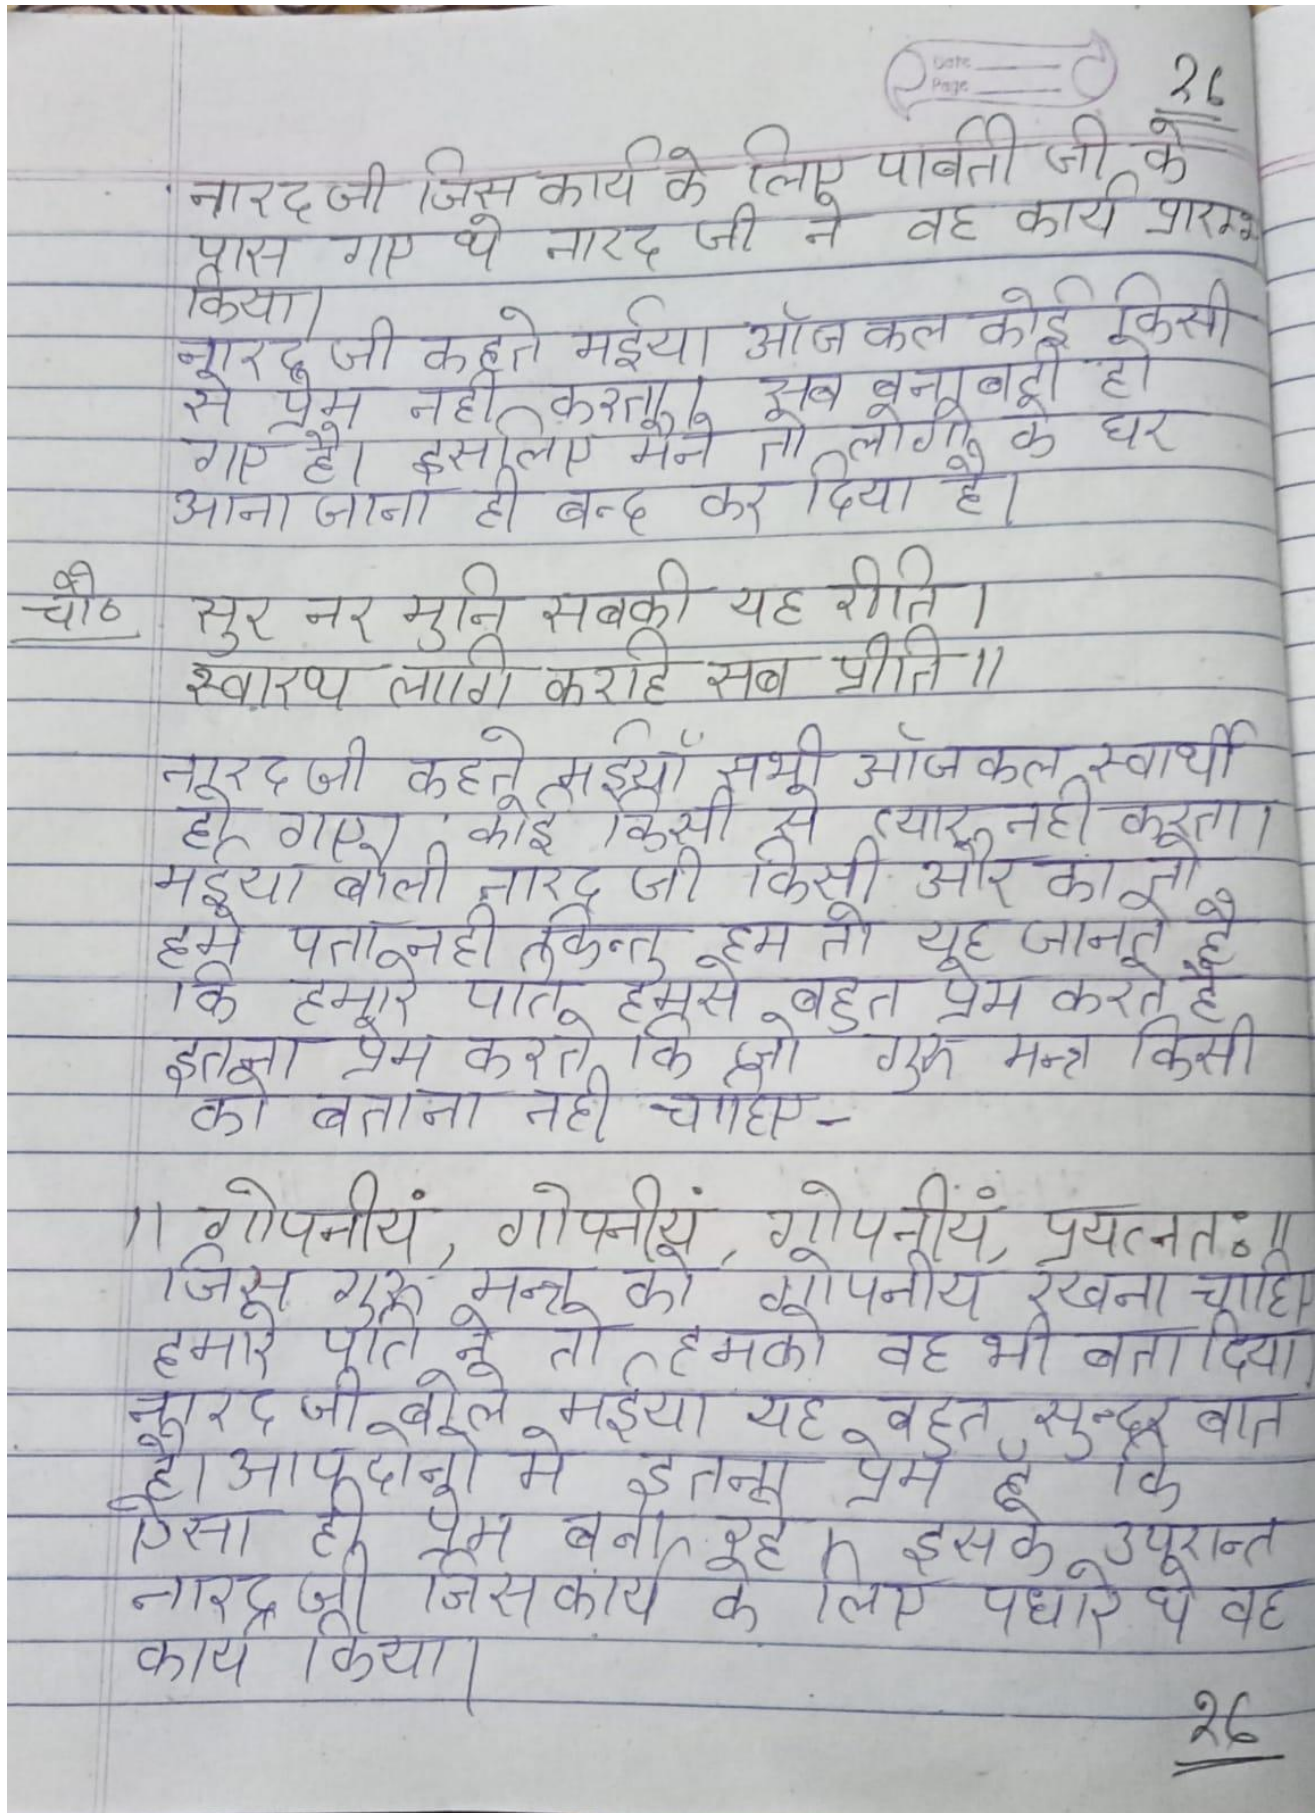 Date
Page
२६
नारद जी जिस कार्य के लिए पार्वती जी के
पास गए थे नारद जी ने वह कार्य प्रारम्भ
किया।
नारद जी कहते मईया ऑज कल कोई किसी
से प्रेम नही करता। सब बनाबटी हो
गए है। इसलिए मैने तो लोगो के घर
आना जाना ही बन्द कर दिया है।
चौ० सुर नर मुनि सबकी यह रीति।
स्वारथ लागि करहि सब प्रीति॥
नारद जी कहते मईयाँ सभी ऑज कल स्वार्थी
हो गए। कोई किसी से प्यार नही करता।
मईया बोली नारद जी किसी और का तो
हमे पता नही किन्तु हम तो यह जानते है
कि हमारे पति हमसे बहुत प्रेम करते है
इतना प्रेम करते कि जो गुरु मन्त्र किसी
को बताना नही चाहिए-
॥ गोपनीयं, गोपनीयं, गोपनीयं, प्रयत्नतः॥
जिस गुरु मन्त्र को गोपनीय रखना चाहिए
हमारे पति ने तो हमको वह भी बता दिया
नारद जी बोले मईया यह बहुत सुन्दर बात
है। आप दोनो मे इतना प्रेम है कि
ऐसा ही प्रेम बना रहे। इसके उपरान्त
नारद जी जिस कार्य के लिए पधारे थे वह
कार्य किया।
२६